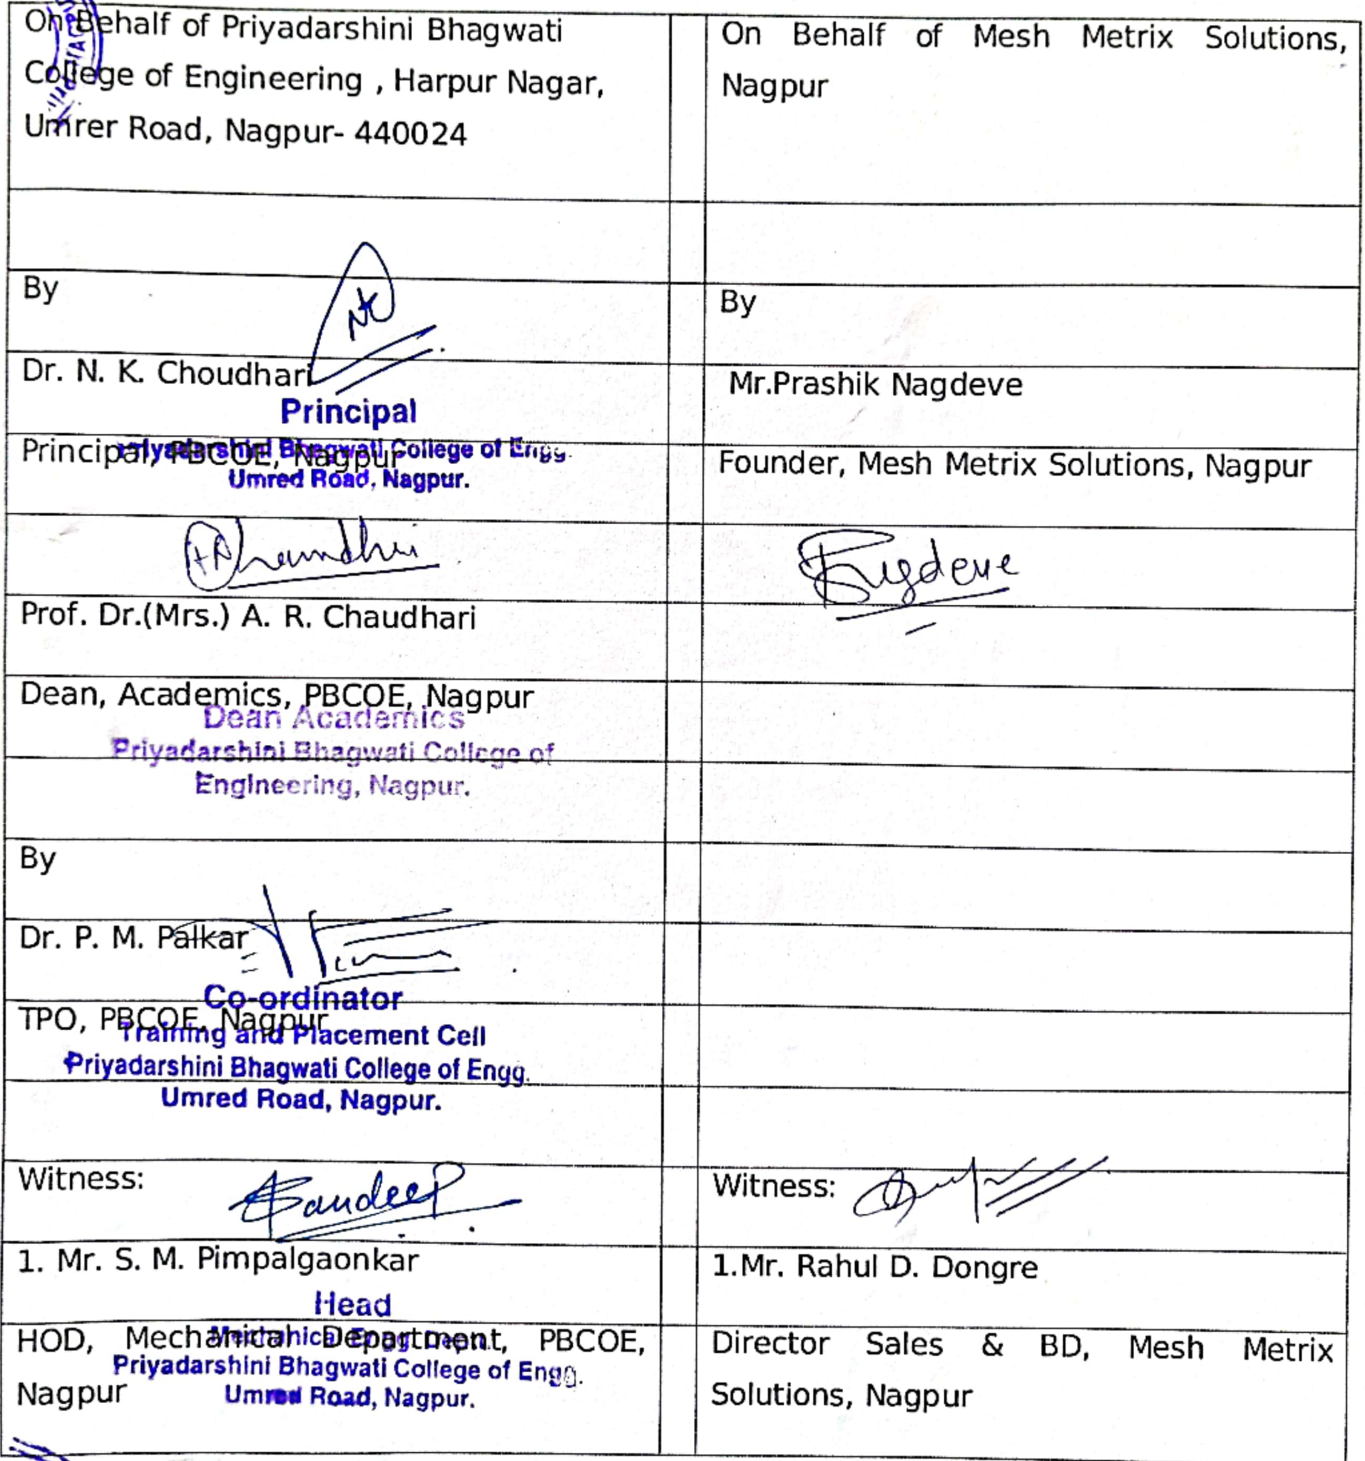 On Behalf of Priyadarshini Bhagwati
College of Engineering , Harpur Nagar,
Umrer Road, Nagpur- 440024
On Behalf of Mesh Metrix Solutions,
Nagpur
By
By
Dr. N. K. Choudhari
Mr.Prashik Nagdeve
Principal
Principal, PBCOE, Nagpur
Priyadarshini Bhagwati College of Engg.
Umred Road, Nagpur.
Founder, Mesh Metrix Solutions, Nagpur
Prof. Dr.(Mrs.) A. R. Chaudhari
Dean, Academics, PBCOE, Nagpur
Dean Academics
Priyadarshini Bhagwati College of
Engineering, Nagpur.
By
Dr. P. M. Palkar
Co-ordinator
TPO, PBCOE, Nagpur
Training and Placement Cell
Priyadarshini Bhagwati College of Engg.
Umred Road, Nagpur.
Witness:
Sandeep
Witness:
1. Mr. S. M. Pimpalgaonkar
1.Mr. Rahul D. Dongre
Head
HOD, Mechanical Department, PBCOE,
Nagpur
Mechanical Engg. Dept.
Priyadarshini Bhagwati College of Engg.
Umred Road, Nagpur.
Director Sales & BD, Mesh Metrix
Solutions, Nagpur